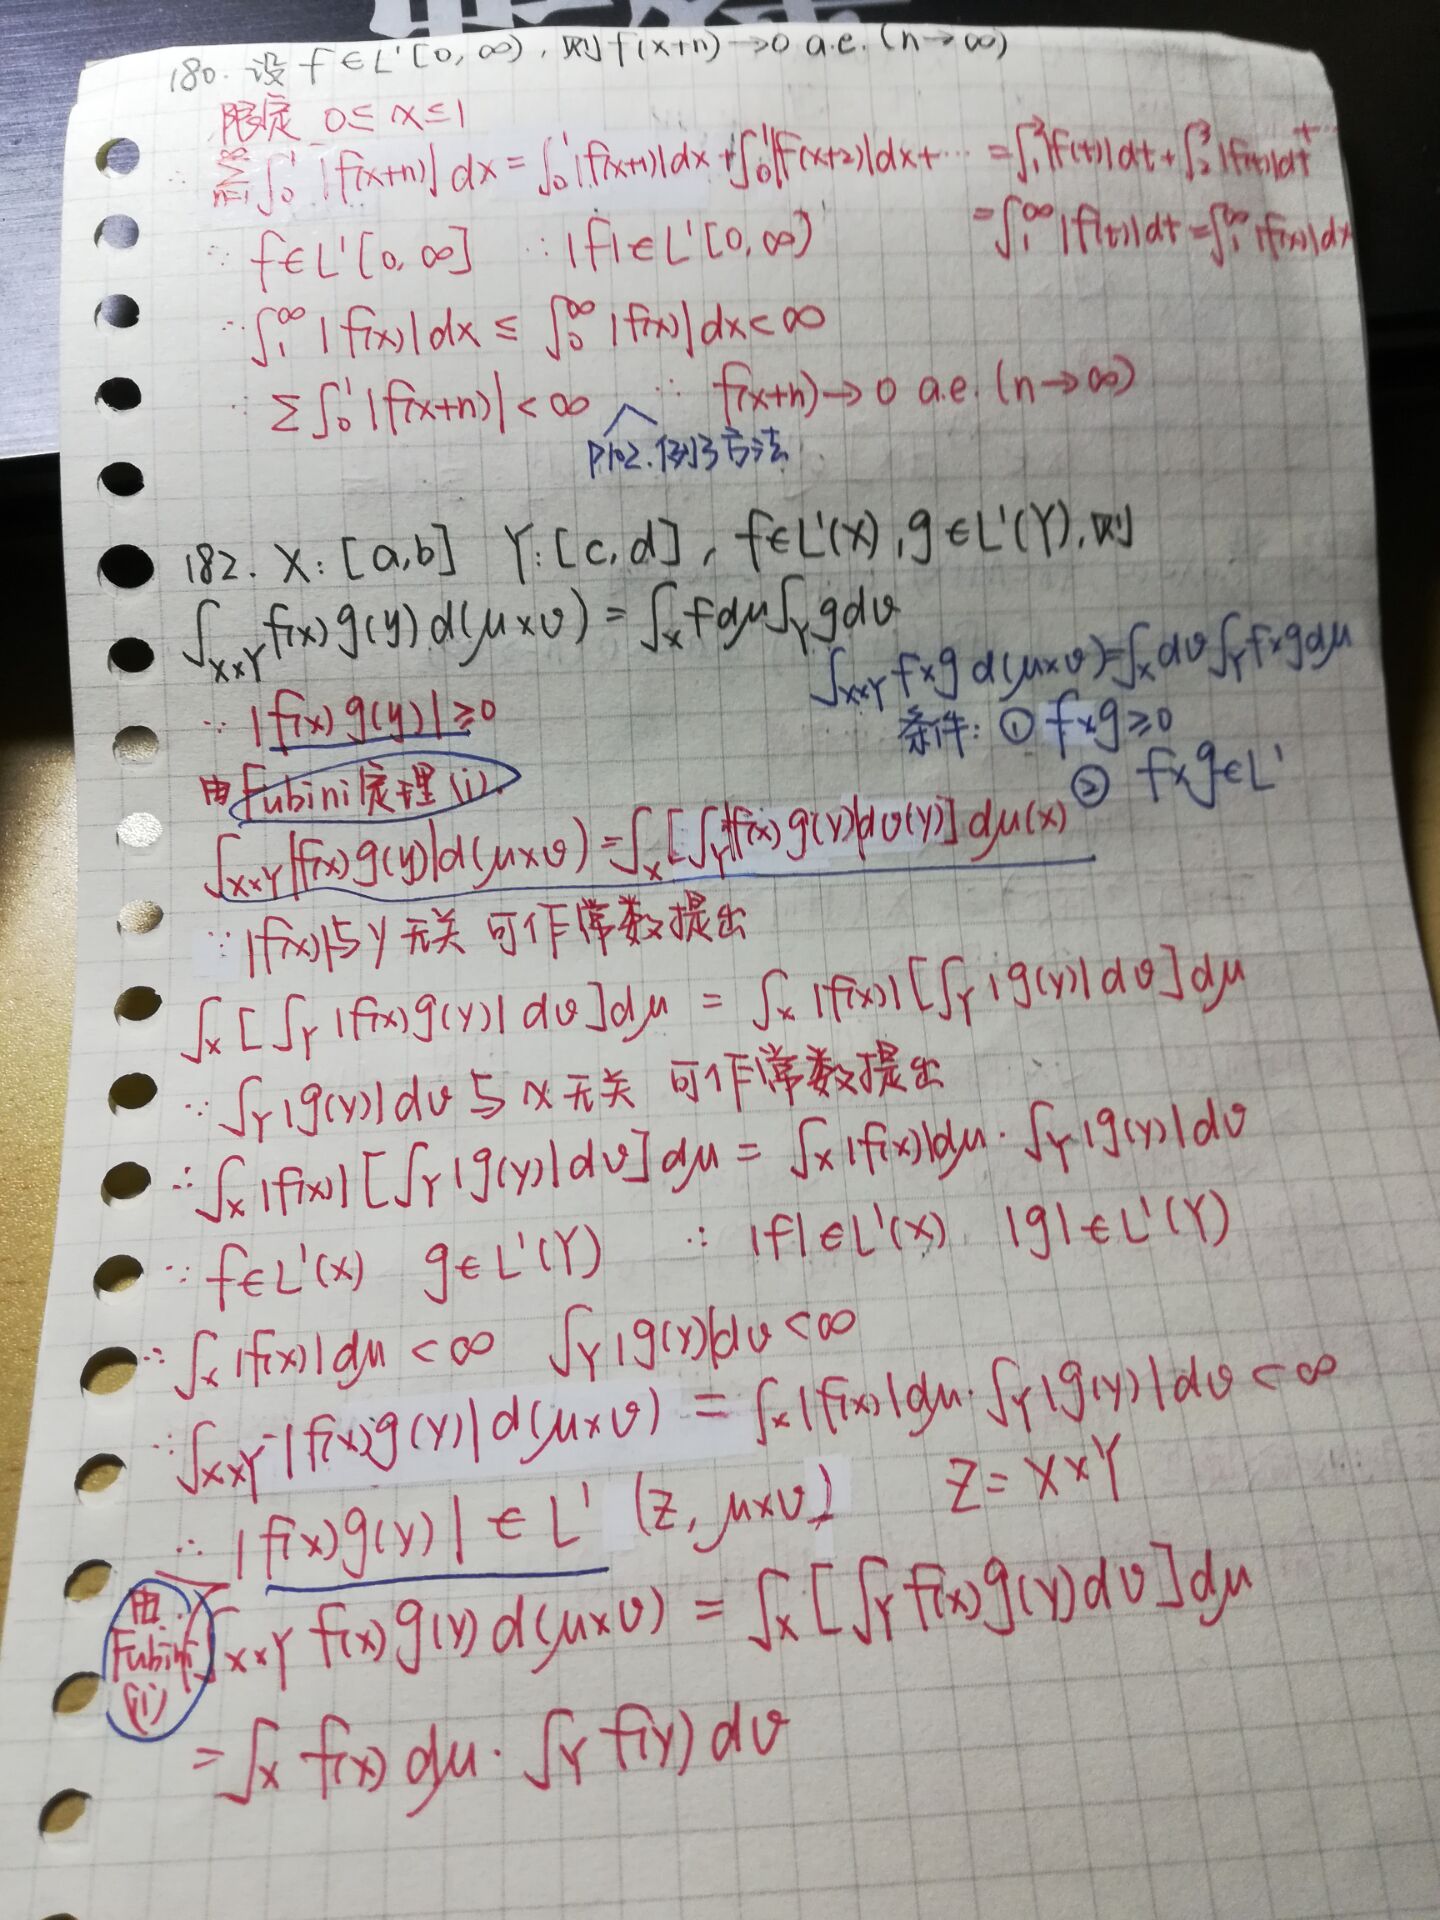 180. 设 f∈L'[0,∞), 则 f(x+n)→0 a.e. (n→∞)
限定 0≤x≤1
∵ ∑_{n=1}^∞ ∫_0^1 |f(x+n)| dx = ∫_0^1 |f(x+1)|dx + ∫_0^1 |f(x+2)|dx+⋯ = ∫_1^2 |f(t)|dt + ∫_2^3 |f(t)|dt + ⋯
= ∫_1^∞ |f(t)|dt = ∫_1^∞ |f(x)|dx
∵ f∈L'[0,∞] ∴ |f|∈L'[0,∞)
∴ ∫_1^∞ |f(x)|dx ≤ ∫_0^∞ |f(x)|dx<∞
∴ ∑∫_0^1 |f(x+n)| < ∞ ∴ f(x+n)→0 a.e. (n→∞)
P102. 例3方法
182. X: [a,b] Y: [c,d], f∈L'(X), g∈L'(Y), 则
∫_{X×Y} f(x) g(y) d(μ×υ) = ∫_X fdμ∫_Y gdυ
∫_{X×Y} f×g d(μ×υ)=∫_X dυ∫_Y f×gdμ
条件: ① f×g≥0
② f×g∈L'
∵ |f(x) g(y)|≥0
由Fubini定理(i).
∫_{X×Y} |f(x)g(y)|d(μ×υ)=∫_X [∫_Y |f(x)g(y)|dυ(y)] dμ(x)
∵ |f(x)|与y无关 可作常数提出
∫_X [∫_Y |f(x)g(y)| dυ]dμ = ∫_X |f(x)| [∫_Y |g(y)| dυ]dμ
∵ ∫_Y |g(y)|dυ 与x无关 可作常数提出
∴ ∫_X |f(x)| [∫_Y |g(y)|dυ] dμ = ∫_X |f(x)|dμ · ∫_Y |g(y)|dυ
∵ f∈L'(X) g∈L'(Y) ∴ |f|∈L'(X) |g|∈L'(Y)
∴ ∫_X |f(x)|dμ < ∞ ∫_Y |g(y)|dυ<∞
∴ ∫_{X×Y} |f(x)g(y)| d(μ×υ) = ∫_X |f(x)|dμ·∫_Y |g(y)|dυ<∞
∴ |f(x)g(y)| ∈ L' (Z, μ×υ) Z=X×Y
由Fubini(i) ∫_{X×Y} f(x)g(y)d(μ×υ) = ∫_X [∫_Y f(x)g(y)dυ]dμ
=∫_X f(x) dμ · ∫_Y f(y) dυ